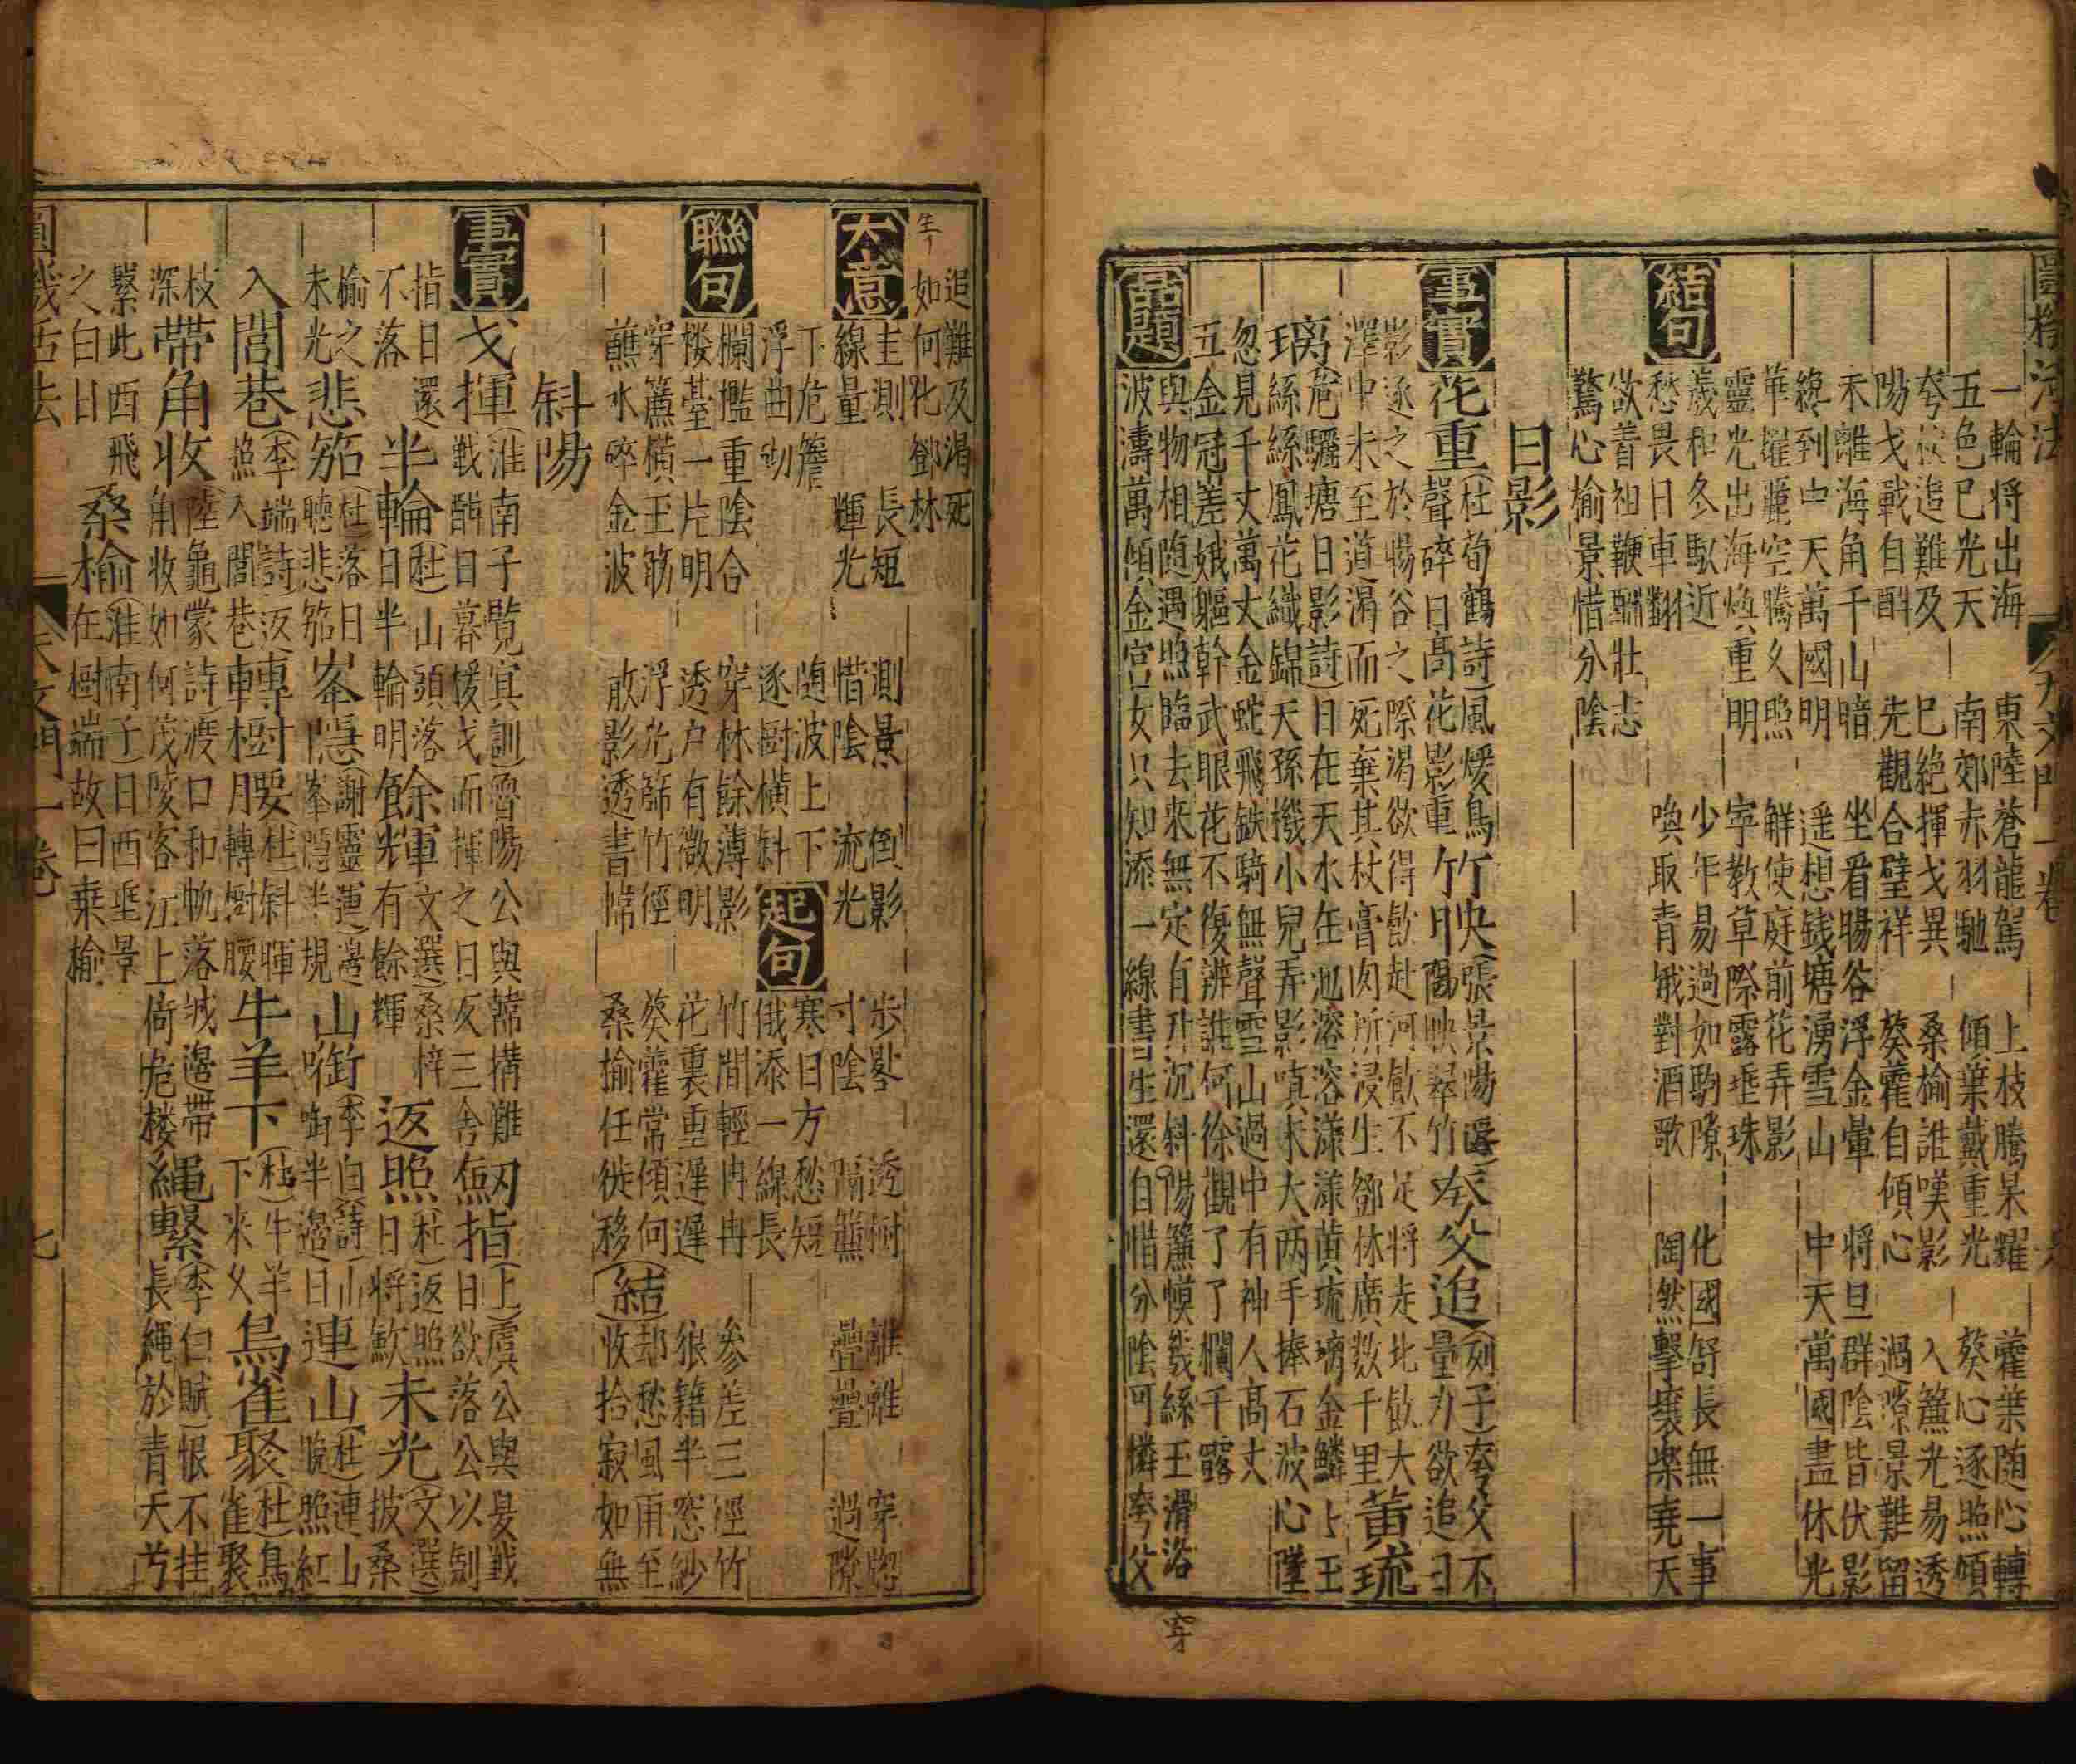 圓機活法 天文門一卷
一輪将出海 東陸蒼龍駕 上枝騰杲耀 藿葉随心轉
五色已光天 南郊赤羽馳 傾葉戴重光 葵心逐照傾
夸父追難及 已絶揮戈異 桑榆誰嘆影 入簾光易透
陽戈戰自酣 先觀合璧祥 葵藿自傾心 過隙景難留
未離海角千山暗 坐看暘谷浮金暈 将旦群陰皆伏影
纔到中天萬國明 遥想錢塘湧雪山 中天萬國盡休光
華耀麗空騰久照 解使庭前花弄影
靈光出海煥重明 寕教草際露垂珠
結句
羲和冬馭近 少年易過如駒隙 化國舒長無一事
愁畏日車翻 喚取青娥對酒歌 陶然擊壤樂堯天
欲着祖鞭酬壯志
驚心榆景惜分陰
日影
事實
花重(杜荀鶴詩)風煖鳥聲碎日高花影重
竹映(張景陽區)陽映翠竹
夸父追(列子)夸父不量力欲追日影逐之於暘谷之際渴欲得飲赴河飲不足将走北飲大澤中未至道渴而死棄其杖膏肉所浸生鄧林廣数千里
黄琉璃(危驪塘日影詩)日在天水在池溶溶漾漾黄琉璃金鱗上玉絲絲鳳花織錦天孫機小兒弄影嗔未大两手捧石波心墜
忽見千丈萬丈金蛇飛鉄騎無聲雪山過中有神人高丈
五金冠差娥軀幹武眼花不復辨誰何徐觀了了欄干露
品題
與物相随遇照臨去来無定自升沉斜陽簾幙幾絲玉滑浴
波濤萬傾金宫女只知添一線書生還自惜分陰可憐夸父
穿
追難及渴死
如何化鄧林
大意
圭測 長短 測景 倒影 步晷 透樹 離離 穿牕
線量 輝光 惜陰 流光 寸陰 隔簾 疊疊 過隙
下危簷 随波上下
浮曲砌 逐樹横斜
起句
寒日方愁短
俄添一線長
聯句
欄檻重陰合 穿林餘薄影 竹間輕冉冉 參差三逕竹
楼䑓一片明 透户有微明 花裏重遲遲 狼籍半窓紗
穿簾横玉筯 浮光篩竹徑 葵藿常傾何
蘸水碎金波 敢影透書幌 桑揄任徙移
(結)
却愁風雨至
收拾寂如無
斜陽
事實
戈揮(淮南子覧㝠訓)魯陽公與韓搆難戰酣日暮援戈而揮之日反三舍
劒指(上)虞公與夏戰日欲落公以劍指日還不落
半輪(杜)山頭落日半輪明
餘輝(文選)桑梓有餘輝
返照(杜)返照日将歛
未光(文選)披桑榆之未光
悲笳(杜)落日聴悲笳
峯隠(謝靈運)遠峯隠半規
山㗸(李白詩)山㗸半邉日
連山(杜)連山晩照紅
入閭巷(李端詩)返照入閭巷
轉樹腰(杜)斜暉車樹月轉樹腰
牛羊下(杜)牛羊下來久
鳥雀聚(杜)鳥雀聚枝深
帶角收(陸龜蒙詩)渡口和帆落城邉帶角收如何茂陵客江上倚危楼
繩繫(李白賦)恨不挂長繩於青天芍繫此西飛之白日
桑榆(淮南子)日西垂景在樹端故曰桒榆
圓機活法 天文門一卷 七